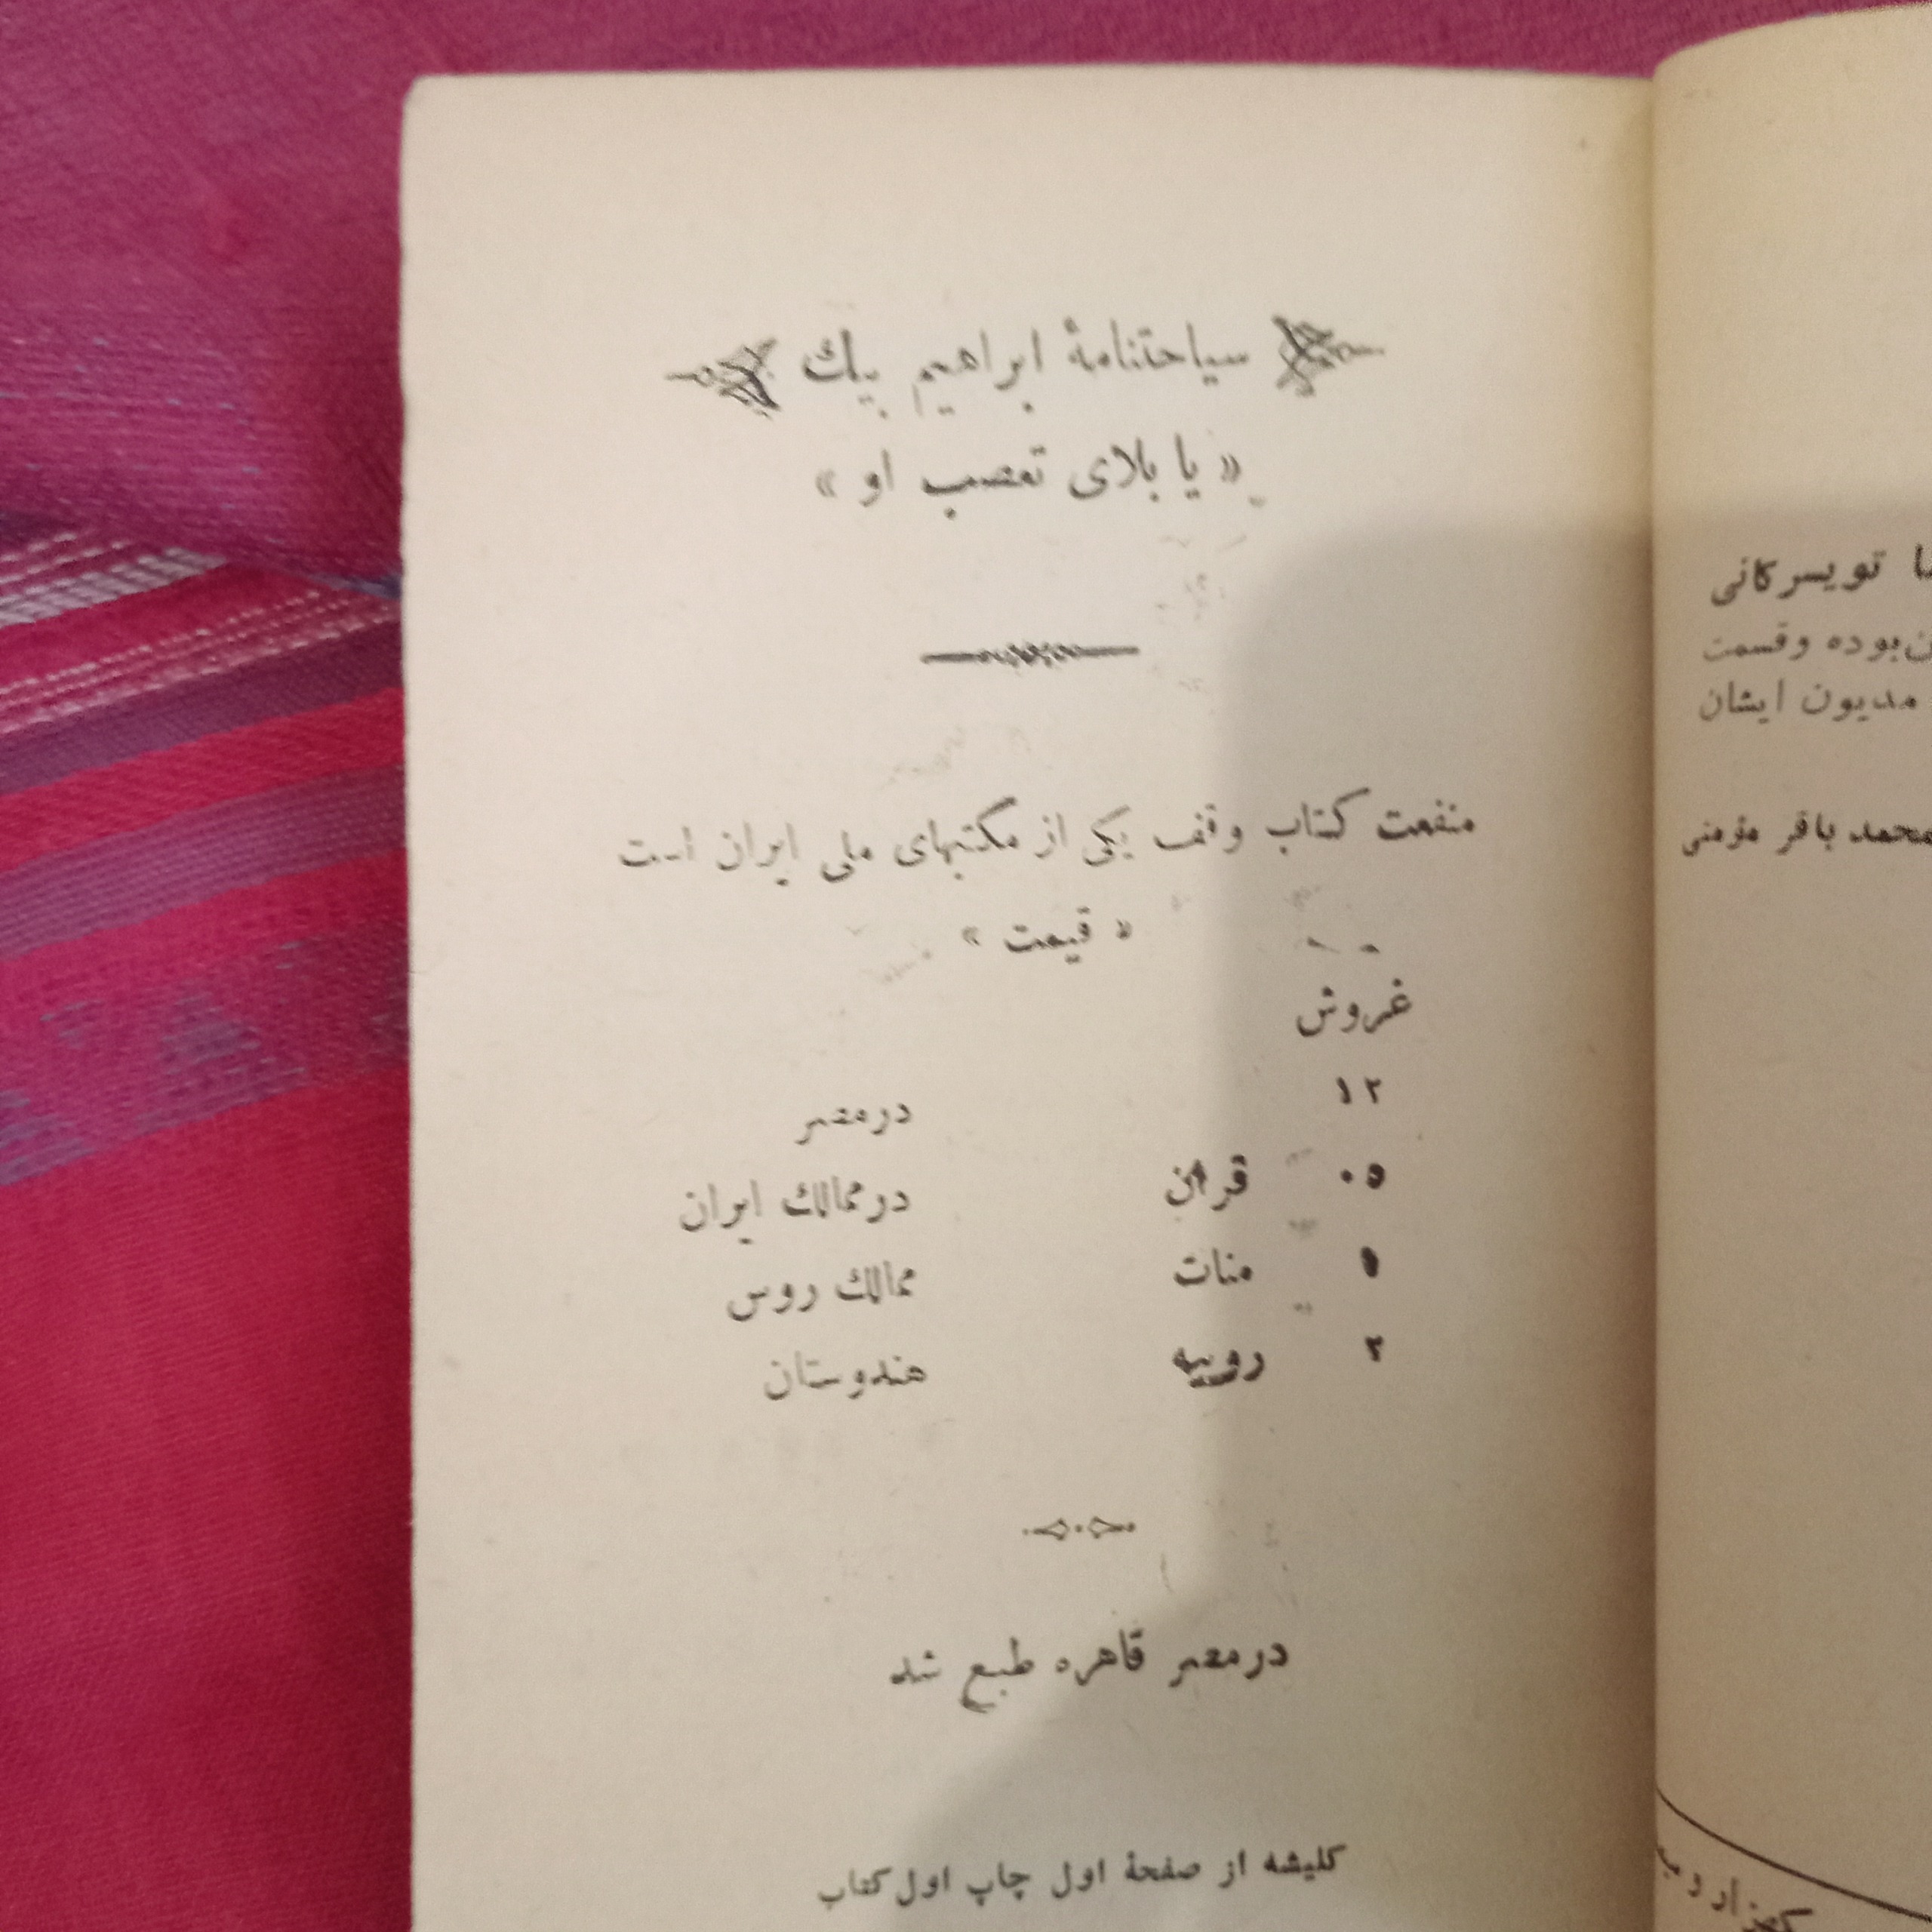 سیاحتنامهٔ ابراهیم بیك
« یا بلای تعصب او »
منفعت کتاب وقف یکی از مکتبهای ملی ایران است
« قیمت »
غروش
۱۲ درمصر
۰۵ قران درممالك ایران
۱ منات ممالك روس
۲ روپیه هندوستان
درمصر قاهره طبع شد
کلیشه از صفحهٔ اول چاپ اول کتاب
تویسرکانی
بوده وقسمت
مدیون ایشان
محمد باقر مؤمنی